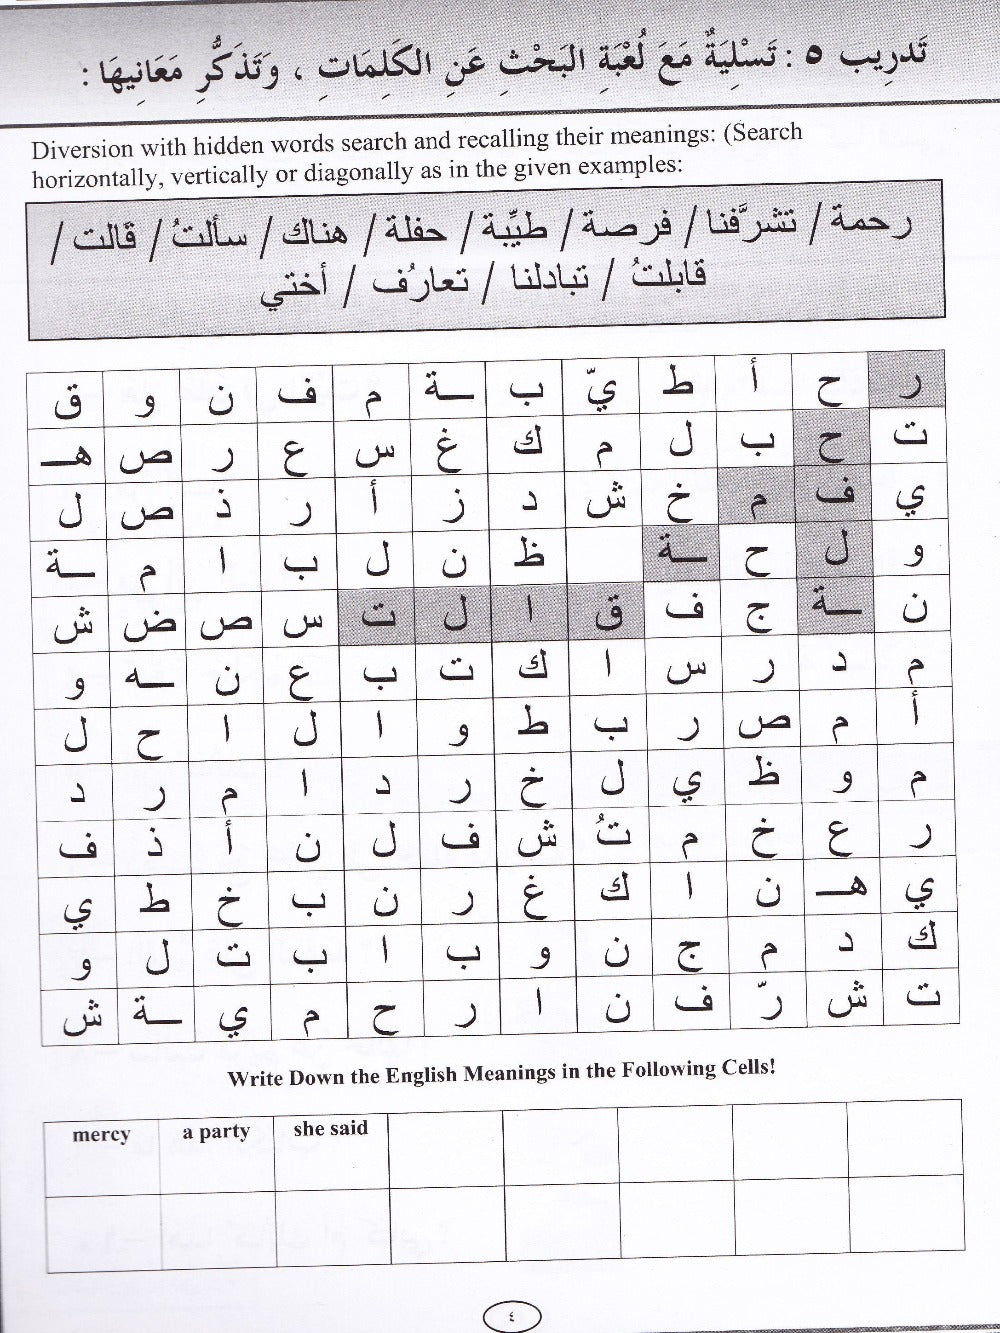 تَدرِيب ٥ : تَسْلِيَةٌ مَعَ لُعْبَةِ البَحْثِ عَنِ الكَلِمَاتِ ، وَتَذَكُّرِ مَعَانِيهَا :
Diversion with hidden words search and recalling their meanings: (Search
horizontally, vertically or diagonally as in the given examples:
رحمة / تشرَّفنا / فرصة / طيِّبة / حفلة / هناك / سألتُ / قَالت /
قابلتُ / تبادلنا / تعارُف / أختي
ر ح أ ط يّ ب ـة م ف ن و ق
ت ح ب ل م ك غ س ع ر ص هـ
ي ف م خ ش د ز أ ر ذ ص ل
و ل ح ـة ظ ن ل ب ا م ـة
ن ـة ج ف ق ا ل ت س ص ض ش
م د ر س ا ك ت ب ع ن ـه و
أ م ص ر ب ط و ا ل ا ح ل
م و ظ ي ل خ ر د ا م ر د
ر ع خ م تُ ش ف ل ن أ ذ ف
ي هـ ن ا ك غ ر ن ب خ ط ي
ك د م ج ن و ب ا ب ت ل و
ت ش رّ ف ن ا ر ح م ي ـة ش
Write Down the English Meanings in the Following Cells!
mercy a party she said
٤